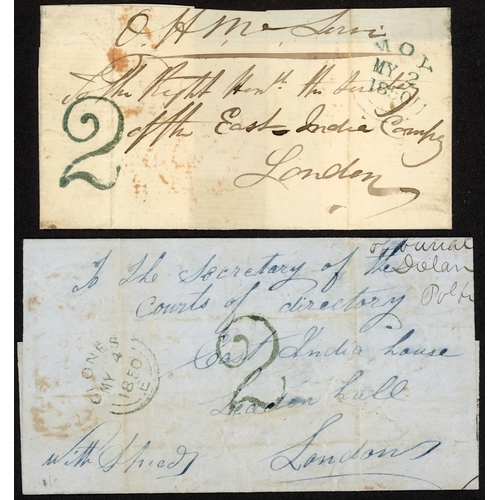 O. H. Mc Servi
MOY
MY 2
1850
2
To the Right Honth the Secretary
of the East India Compy
London
of burial
Dolan
To The Secretary of the
Courts of directory
CLONES
MY 4
1850
E
2
East India house
Leadon hall
London
with Speed